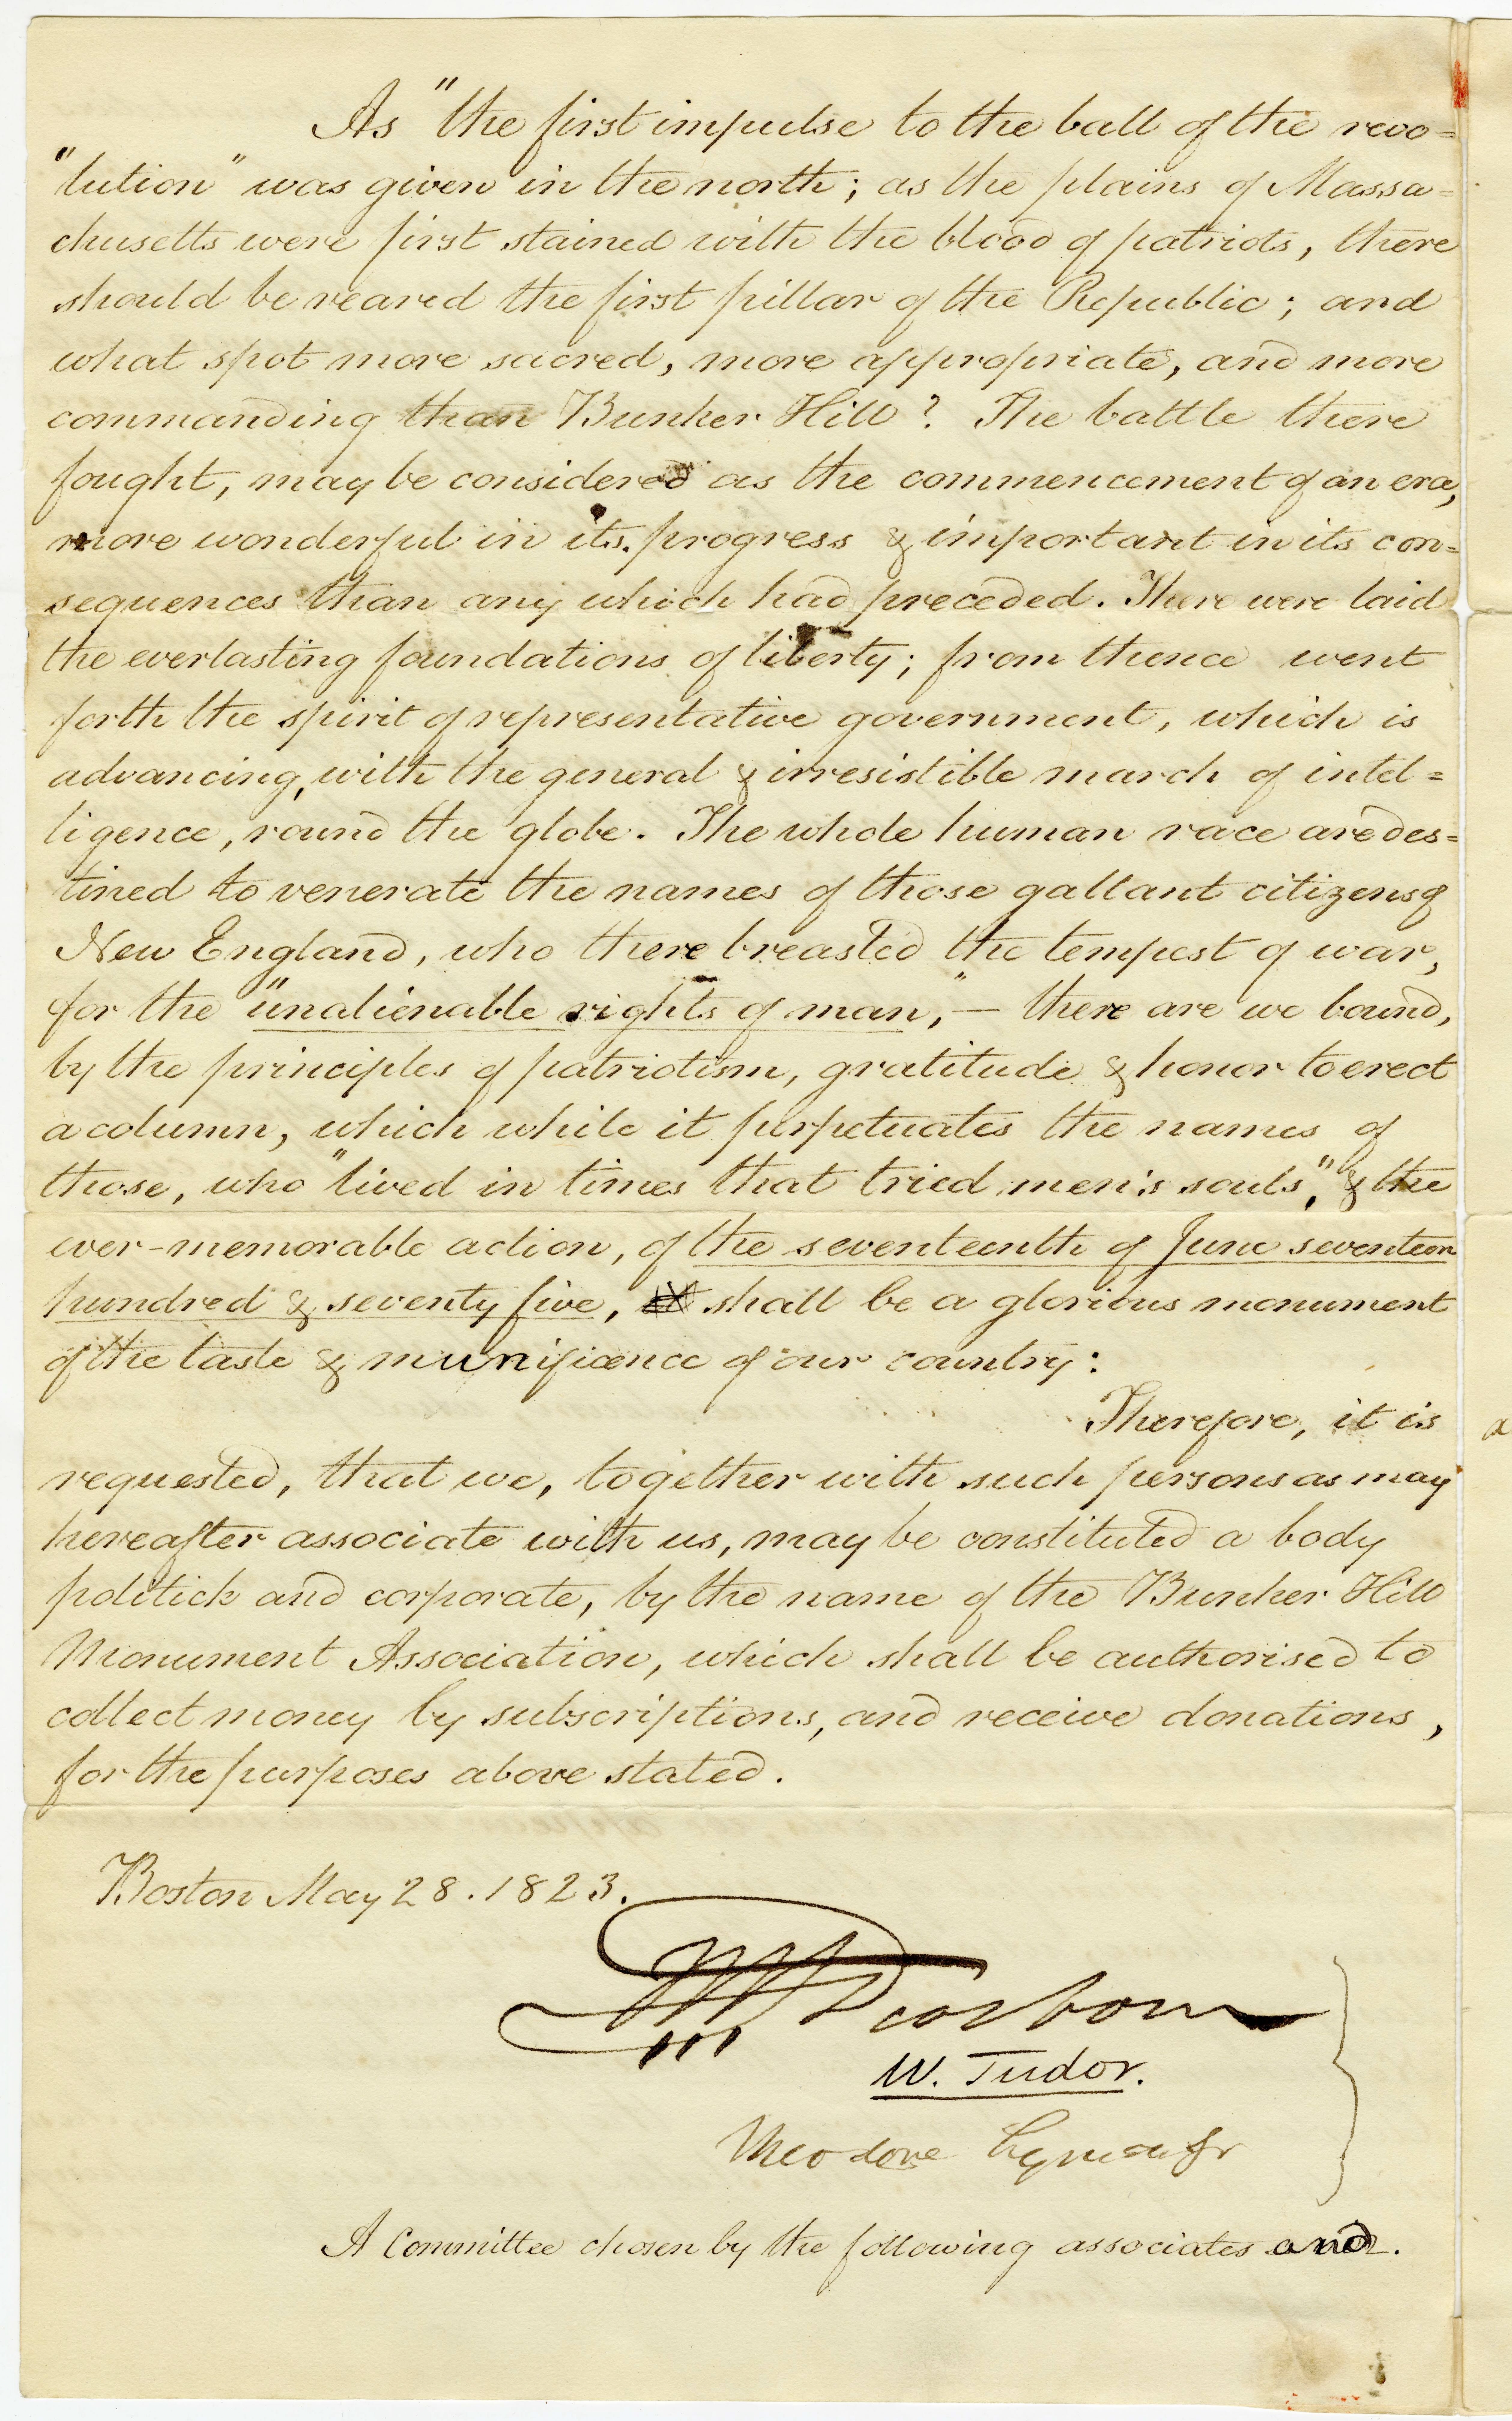 As "the first impulse to the ball of the revo=
"lution" was given in the north; as the plains of Massa=
chusetts were first stained with the blood of patriots, there
should be reared the first pillar of the Republic; and
what spot more sacred, more appropriate, and more
commanding than Bunker Hill? The battle there
fought, may be considered as the commencement of an era,
more wonderful in its progress & important in its con=
sequences than any which had preceded. There were laid
the everlasting foundations of liberty; from thence went
forth the spirit of representative government, which is
advancing, with the general & irresistible march of intel=
ligence, round the globe. The whole human race are des=
tined to venerate the names of those gallant citizens of
New England, who there breasted the tempest of war,
for the "unalienable rights of man," — there are we bound,
by the principles of patriotism, gratitude & honor to erect
a column, which while it perpetuates the names of
those, who "lived in times that tried men's souls," & the
ever-memorable action, of the seventeenth of June seventeen
hundred & seventy five, shall be a glorious monument
of the taste & munificence of our country:
Therefore, it is
requested, that we, together with such persons as may
hereafter associate with us, may be constituted a body
politick and corporate, by the name of the Bunker Hill
Monument Association, which shall be authorised to
collect money by subscriptions, and receive donations,
for the purposes above stated.
Boston May 28. 1823.
Dearborn
W. Tudor.
Theodore Lyman Jr
A Committee chosen by the following associates and.
a